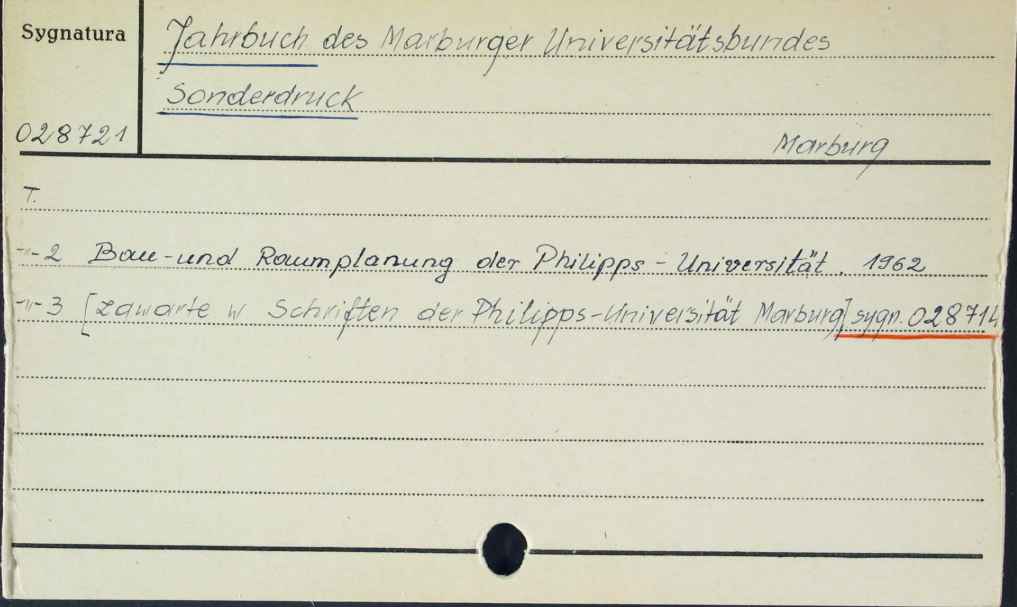 Sygnatura
Jahrbuch des Marburger Universitätsbundes
Sonderdruck
028721
Marburg
T.
-"-2 Bau-und Raumplanung der Philipps-Universität. 1962
-"-3 [zawarte w Schriften der Philipps-Universität Marburg] sygn. 028714